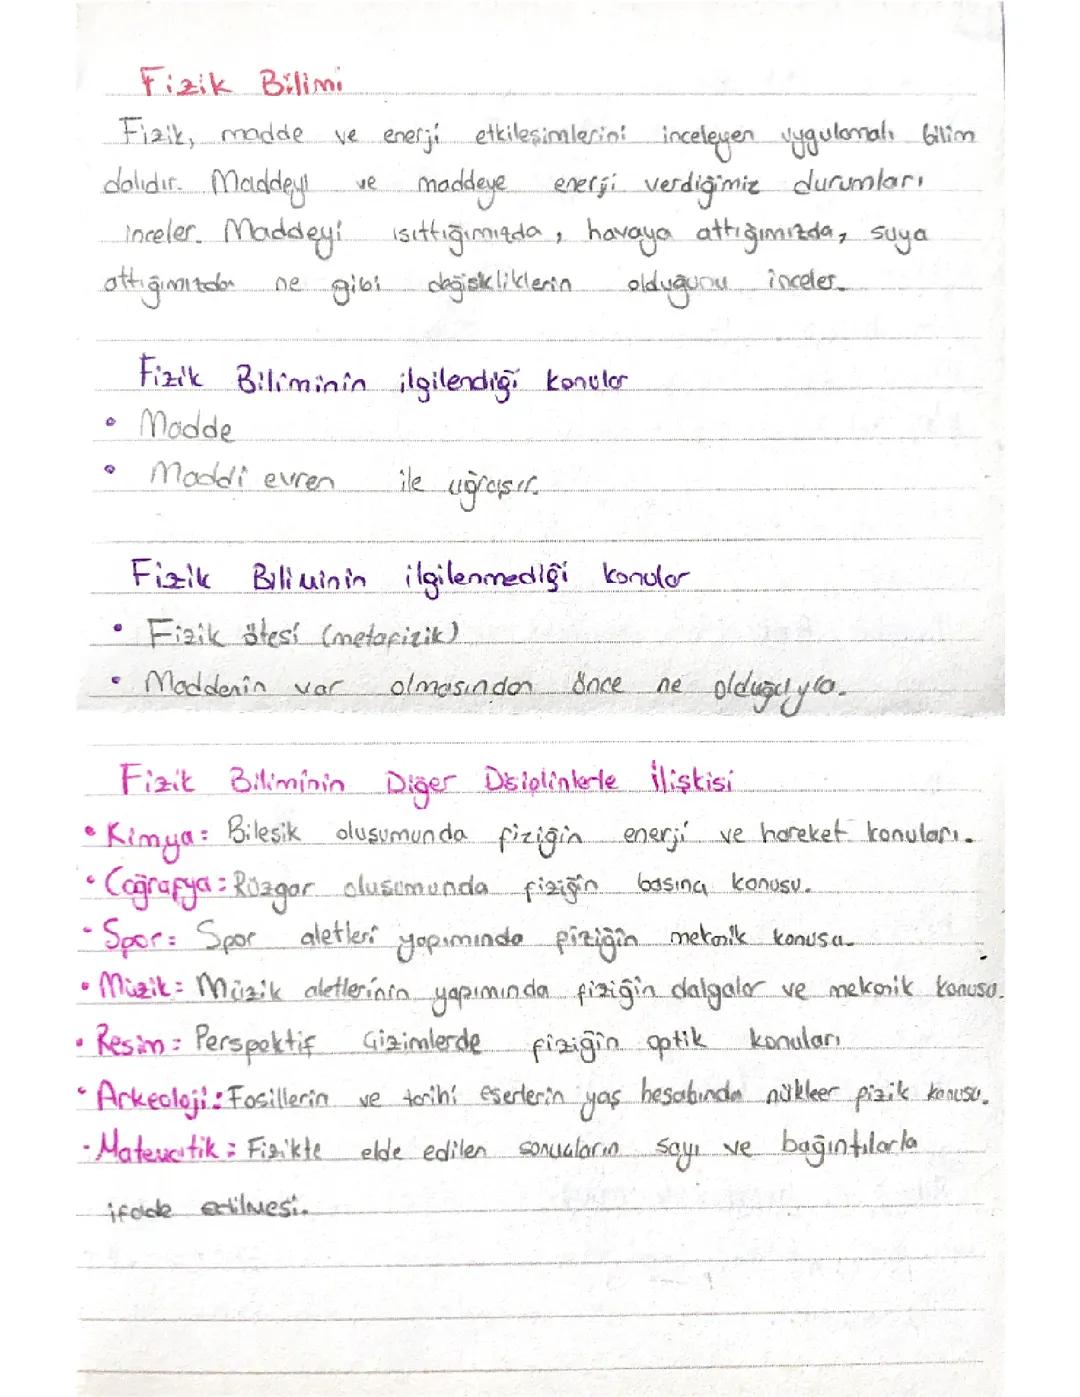 Fizik Bilimi
Fizik, madde ve enerji etkileşimlerini inceleyen uygulamalı bilim
dalıdır. Maddeyi ve maddeye enerji verdiğimiz durumları
inceler. Maddeyi ısıttığımızda, havaya attığımızda, suya
attığımızda ne gibi değişikliklerin olduğunu inceler.
Fizik Biliminin ilgilendiği konular
• Madde
• Maddi evren ile uğraşır.
Fizik Biliminin ilgilenmediği konular
• Fizik ötesi (metafizik)
• Maddenin var olmasından önce ne olduğuyla.
Fizik Biliminin Diğer Disiplinlerle İlişkisi
• Kimya: Bileşik oluşumunda fiziğin enerji ve hareket konuları.
• Coğrafya: Rüzgar oluşumunda fiziğin basınç konusu.
• Spor: Spor aletleri yapımında fiziğin mekanik konusu.
• Müzik: Müzik aletlerinin yapımında fiziğin dalgalar ve mekanik konusu.
• Resim: Perspektif Çizimlerde fiziğin optik konuları
• Arkeoloji: Fosillerin ve tarihi eserlerin yaş hesabında nükleer fizik konusu.
• Matematik: Fizikte elde edilen sonuçların sayı ve bağıntılarla
ifade edilmesi.